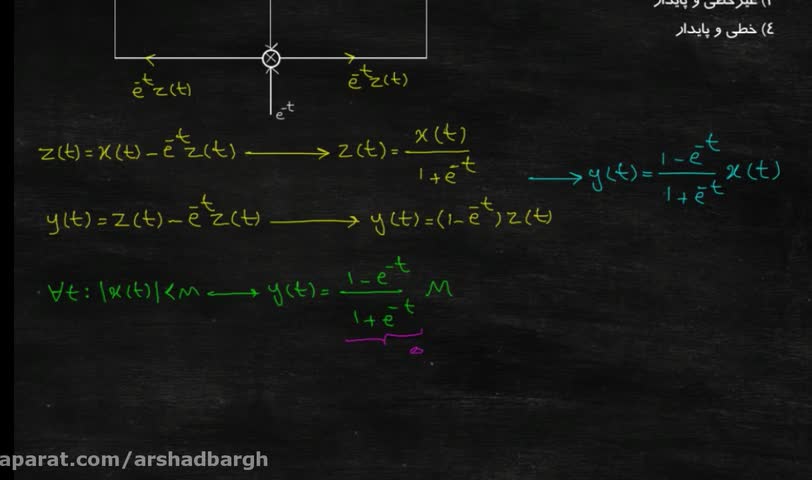 ۳) غیرخطی و پایدار
۴) خطی و پایدار
e^-t z(t)
e^-t z(t)
e^-t
z(t)=x(t)-e^-t z(t) → z(t)= x(t) / 1+e^-t
y(t)=z(t)-e^-t z(t) → y(t)=(1-e^-t)z(t)
→ y(t)= 1-e^-t / 1+e^-t x(t)
∀t: |x(t)|<M → y(t)= 1-e^-t / 1+e^-t M
aparat.com/arshadbargh